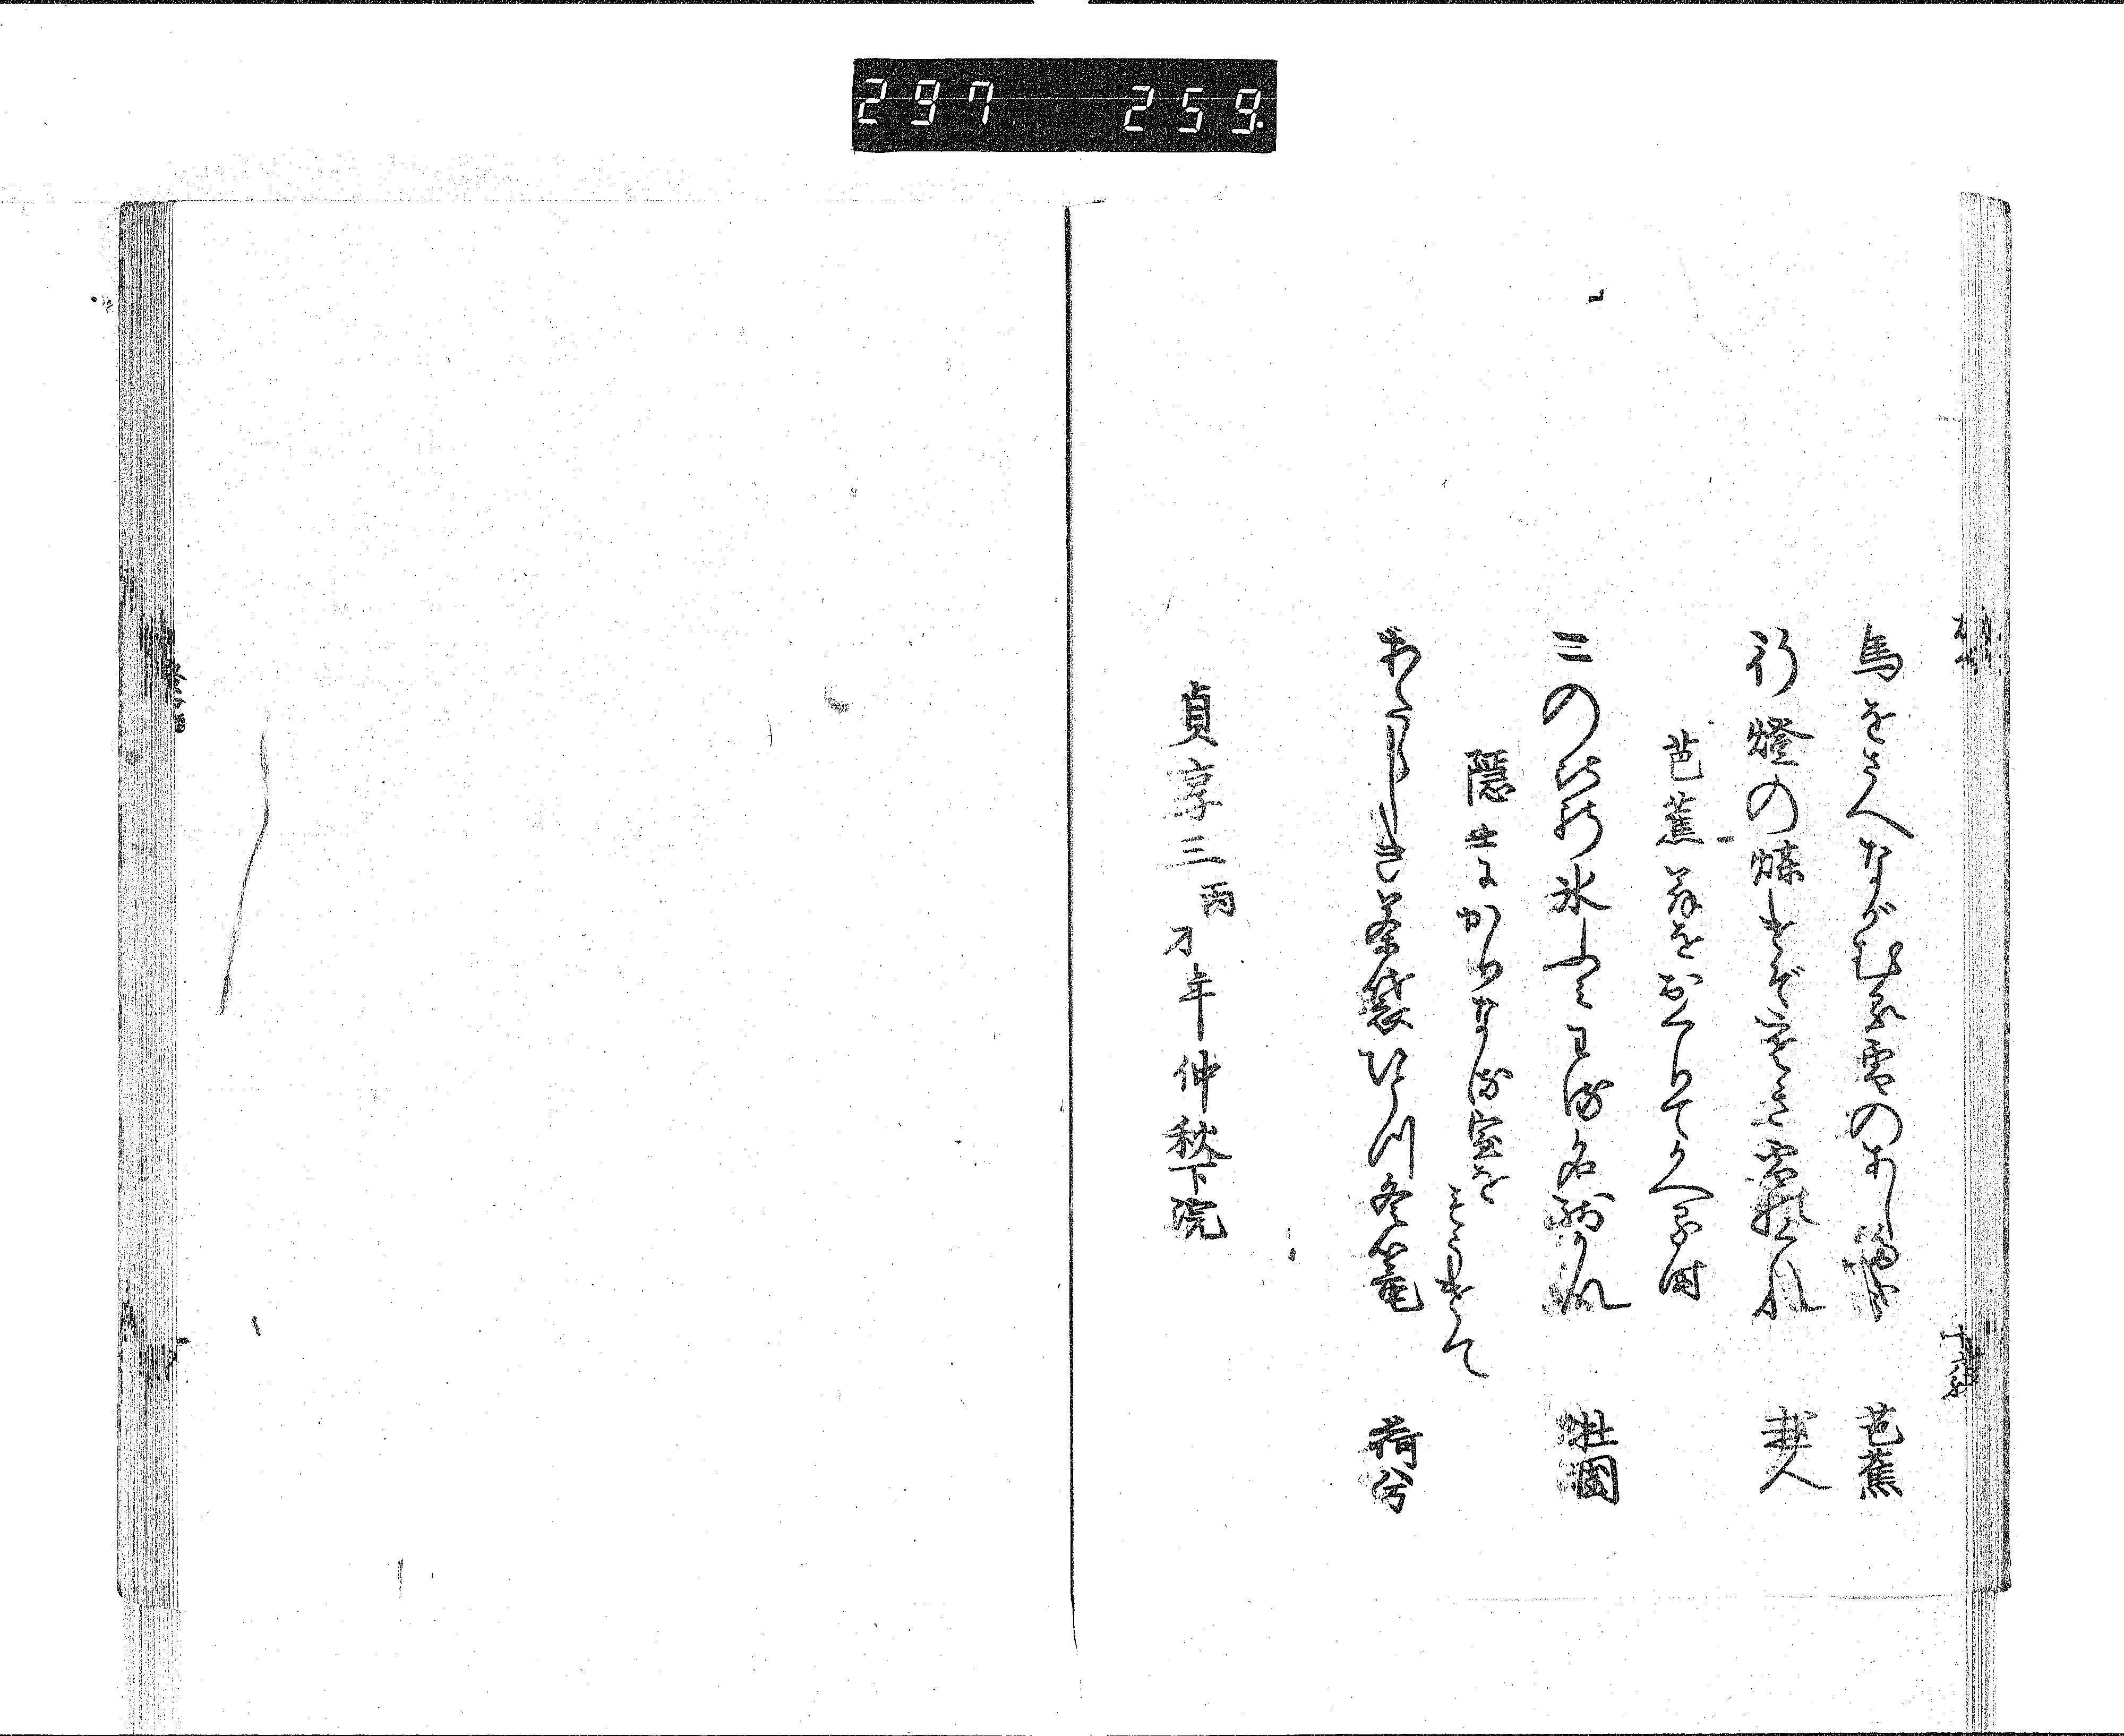 297 259.
馬をさへながむる雪のあした哉 芭蕉
行燈の煤けぞ寒き雪のくれ 越人
芭蕉翁をおくりてかへる時
この比の氷ふみわる名残かな 杜國
隠士にかりなる室をまうけて
あたらしき茶袋ひとつ冬篭 荷兮
貞享三丙刁年仲秋下浣